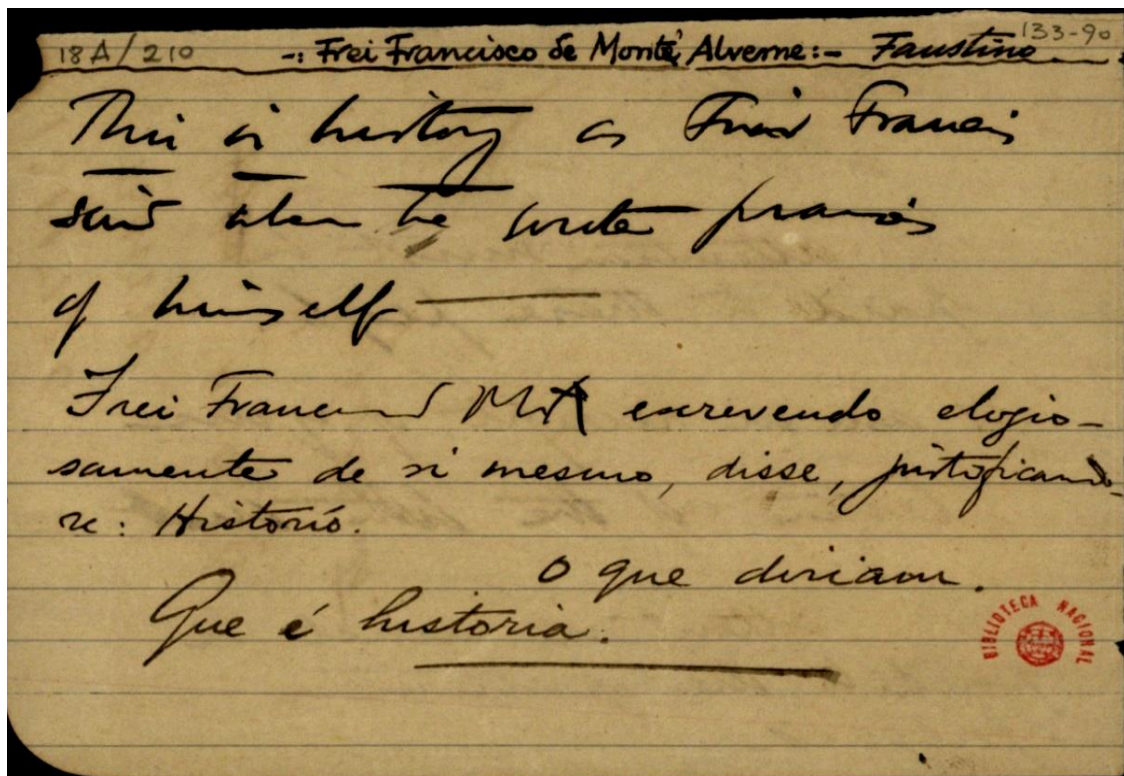 18A/210 -: Frei Francisco de Monte Alverne:- Faustino 133-90
This is history as Friar Francis
said when he wrote praises
of himself
Frei Francisco MA escrevendo elogio-
samente de si mesmo, disse, justificando-
se: Historió.
O que diriam.
Que é historia.
BIBLIOTECA NACIONAL